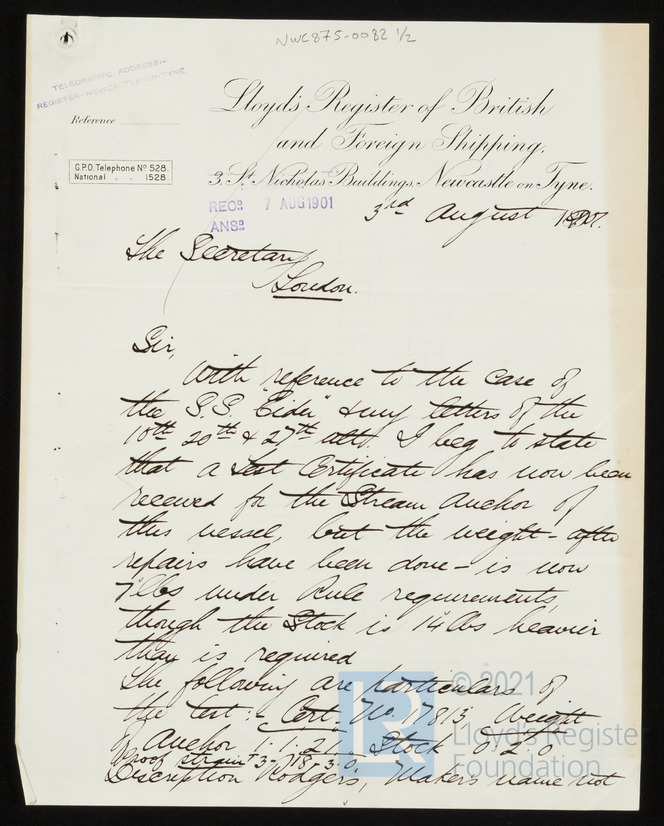 NWC875-0082 1/2
TELEGRAPHIC ADDRESS:-
REGISTER-NEWCASTLE-ON-TYNE
Reference
Lloyd's Register of British
and Foreign Shipping.
G.P.O. Telephone No 528.
National " " 1528.
3, St. Nicholas Buildings, Newcastle on Tyne.
RECD. 7 AUG 1901
ANSD.
3rd August 1901.
The Secretary
London.
Sir,
With reference to the case of
the S.S. "Eider" & my letters of the
20th & 27th ulto. I beg to state
that a test Certificate has now been
received for the Stream Anchor of
this vessel, but the weight - after
repairs have been done - is now
7 lbs under Rule requirements,
though the Stock is 14 lbs heavier
than is required
The following are particulars of
the test :- Cert. No. 17813, Weight
of Anchor 1.1.21. Stock 0.2.0
Proof strain 3-18-3-0
Description Rodgers, Makers name not
© 2021
Lloyd's Register
Foundation
LR